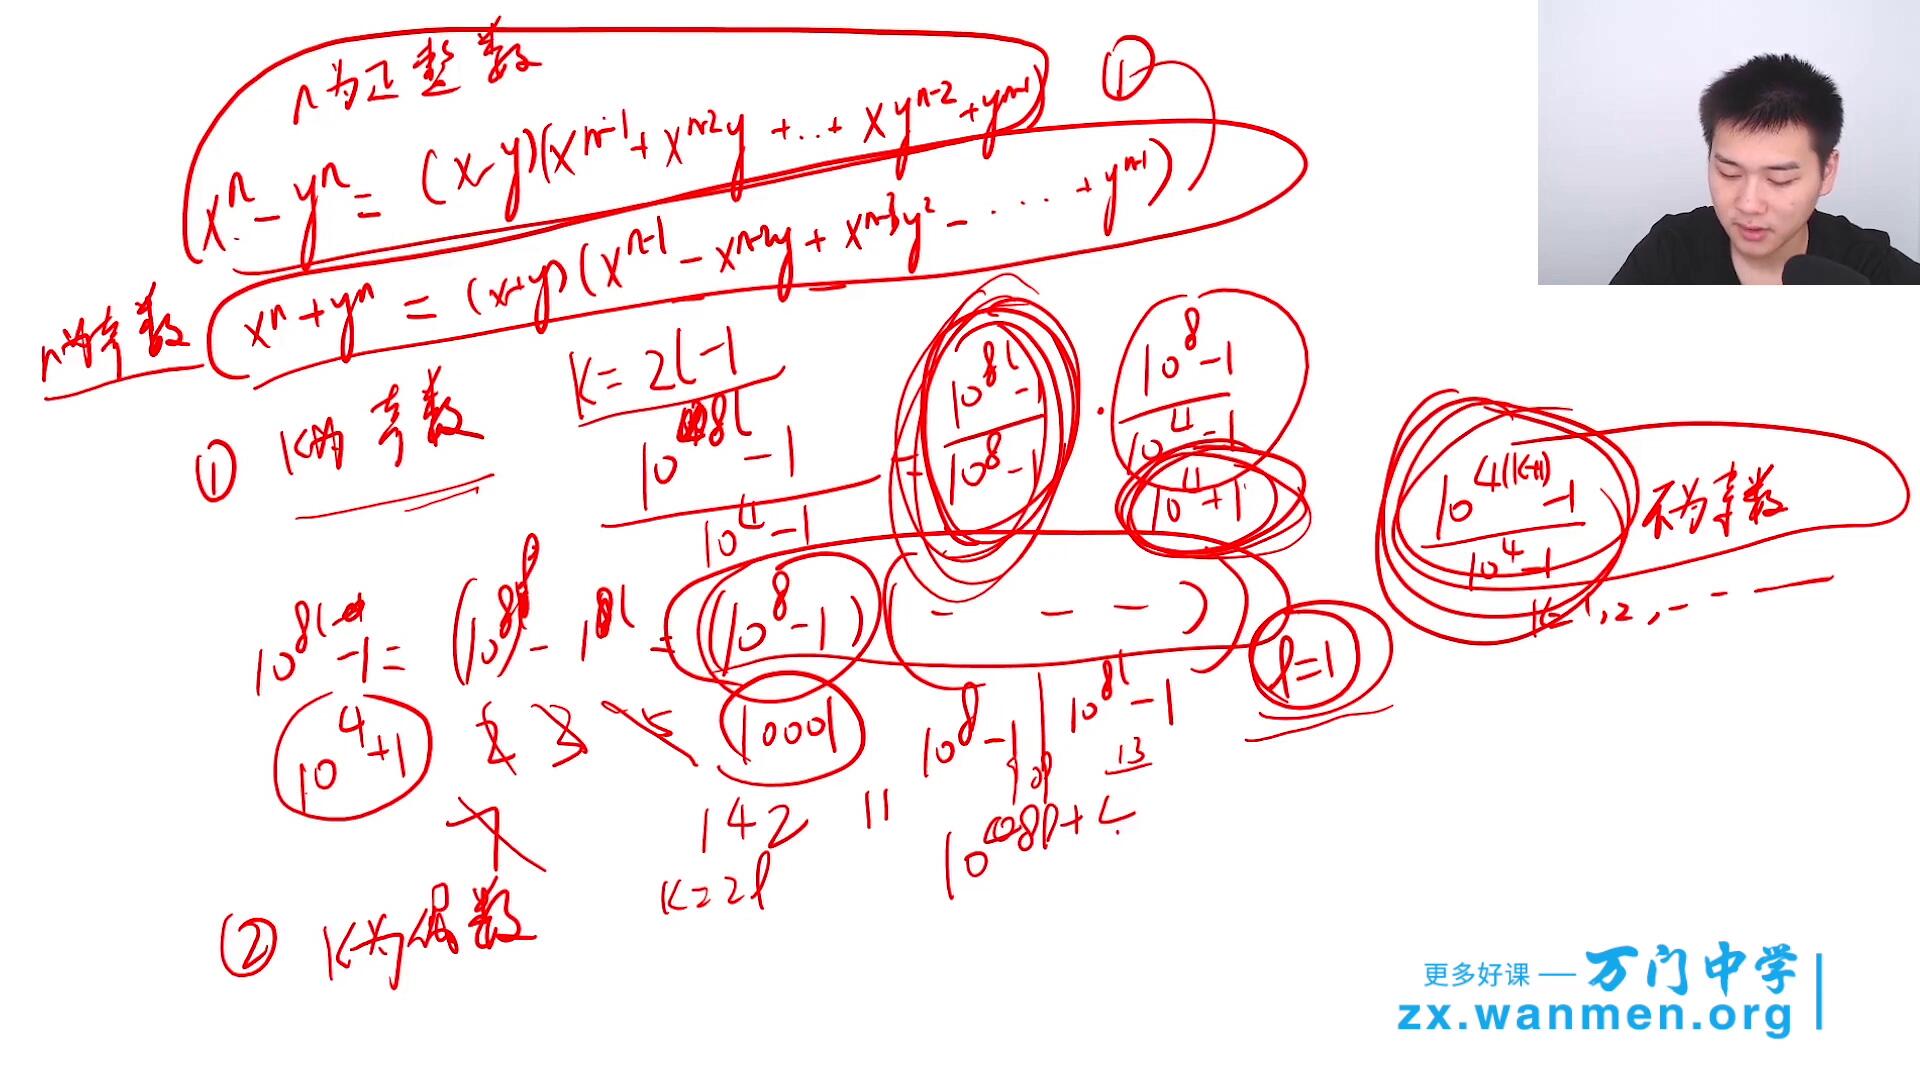 n为正整数
①
xⁿ - yⁿ = (x-y)(xⁿ⁻¹ + xⁿ⁻²y + ... + xyⁿ⁻² + yⁿ⁻¹)
n为奇数
xⁿ + yⁿ = (x+y)(xⁿ⁻¹ - xⁿ⁻²y + xⁿ⁻³y² - ... + yⁿ⁻¹)
① k为奇数
k = 2l - 1
(10^{8l} - 1)/(10⁴ - 1) = (10^{8l} - 1)/(10⁸ - 1) · (10⁸ - 1)/(10⁴ - 1)
10⁴+1
(10^{4(k+1)} - 1)/(10⁴ - 1) 不为素数
k=1,2,---
10^{8l} - 1 = (10⁸)^l - 1^{l} = (10⁸-1)(- - -)
l=1
10⁴+1
2 3 5
10001
10⁸-1 | 10^{8l}-1
7
13
142
11
② k为偶数
k=2l
更多好课 — 万门中学
zx.wanmen.org